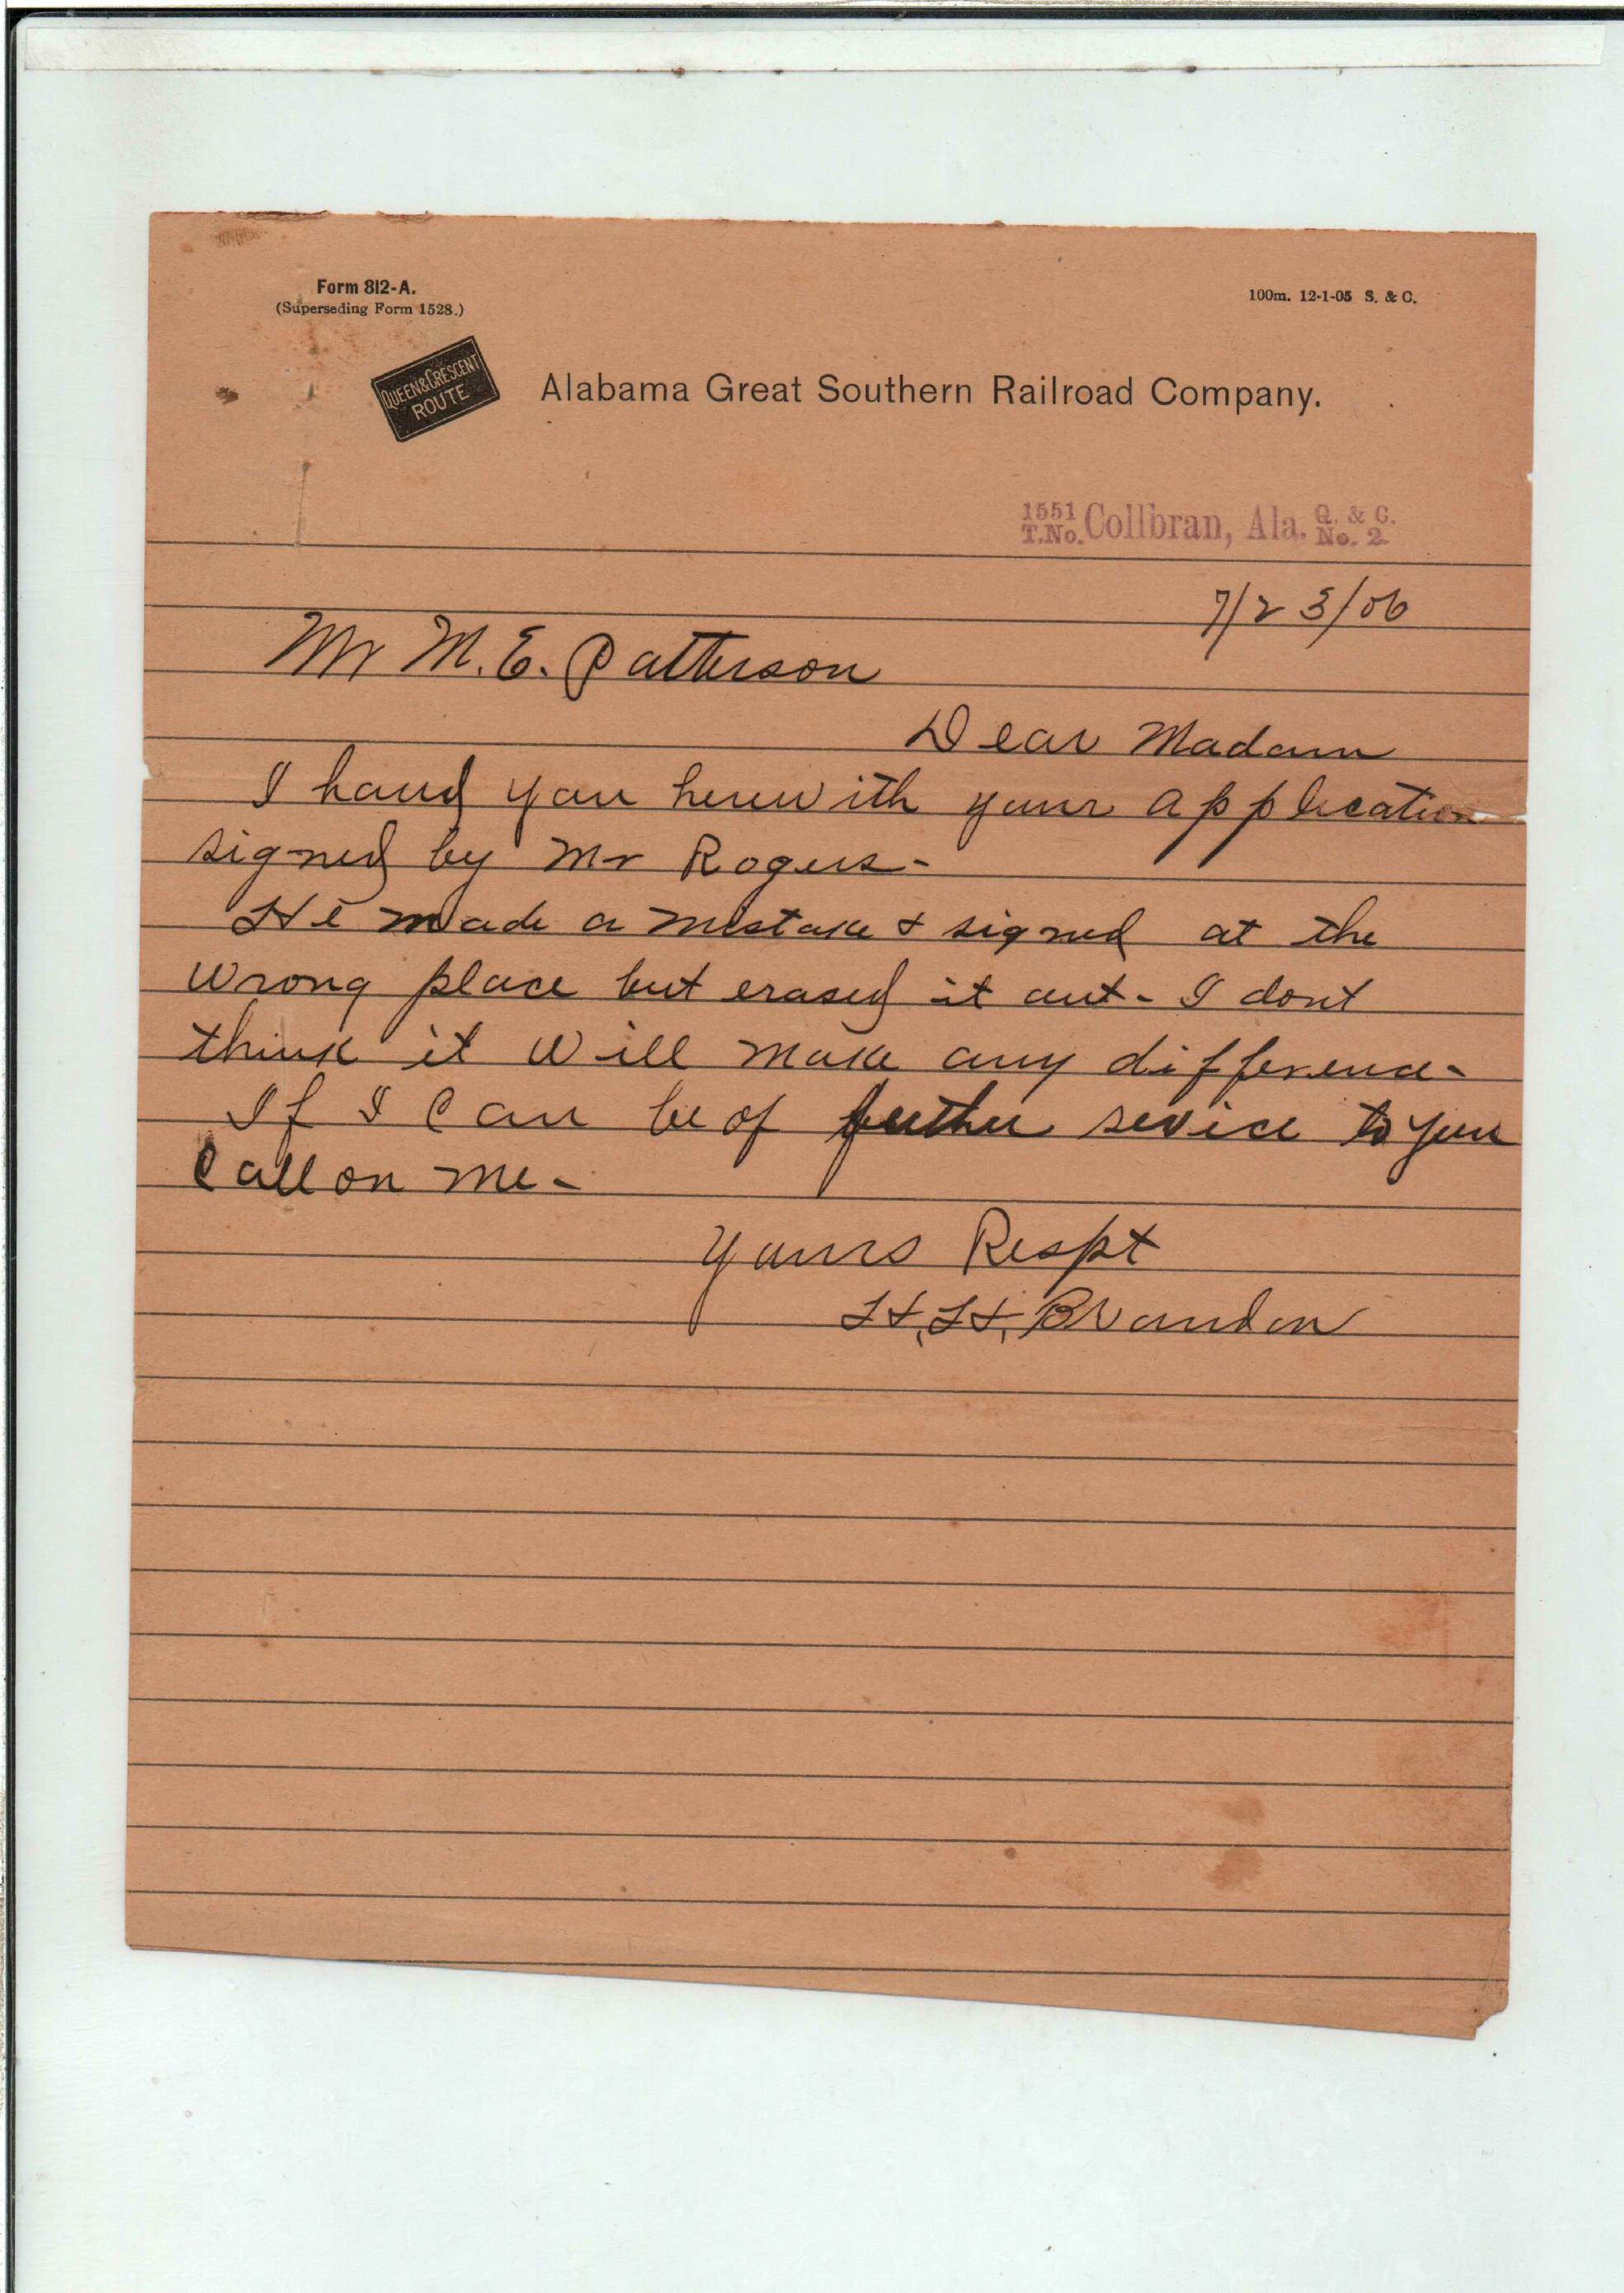 Form 812-A.
(Superseding Form 1528.)
100m. 12-1-05 S. & C.
QUEEN & CRESCENT
ROUTE
Alabama Great Southern Railroad Company.
1551
T.No. Collbran, Ala. Q. & C.
No. 2
7/23/06
Mr M. E. Patterson
Dear Madam
I hand you herewith your application
signed by Mr Rogers-
He made a mistake & signed at the
wrong place but erased it out- I dont
think it will make any difference-
If I can be of further sevice to you
Call on me-
Yours Respt
H. H. Brandon